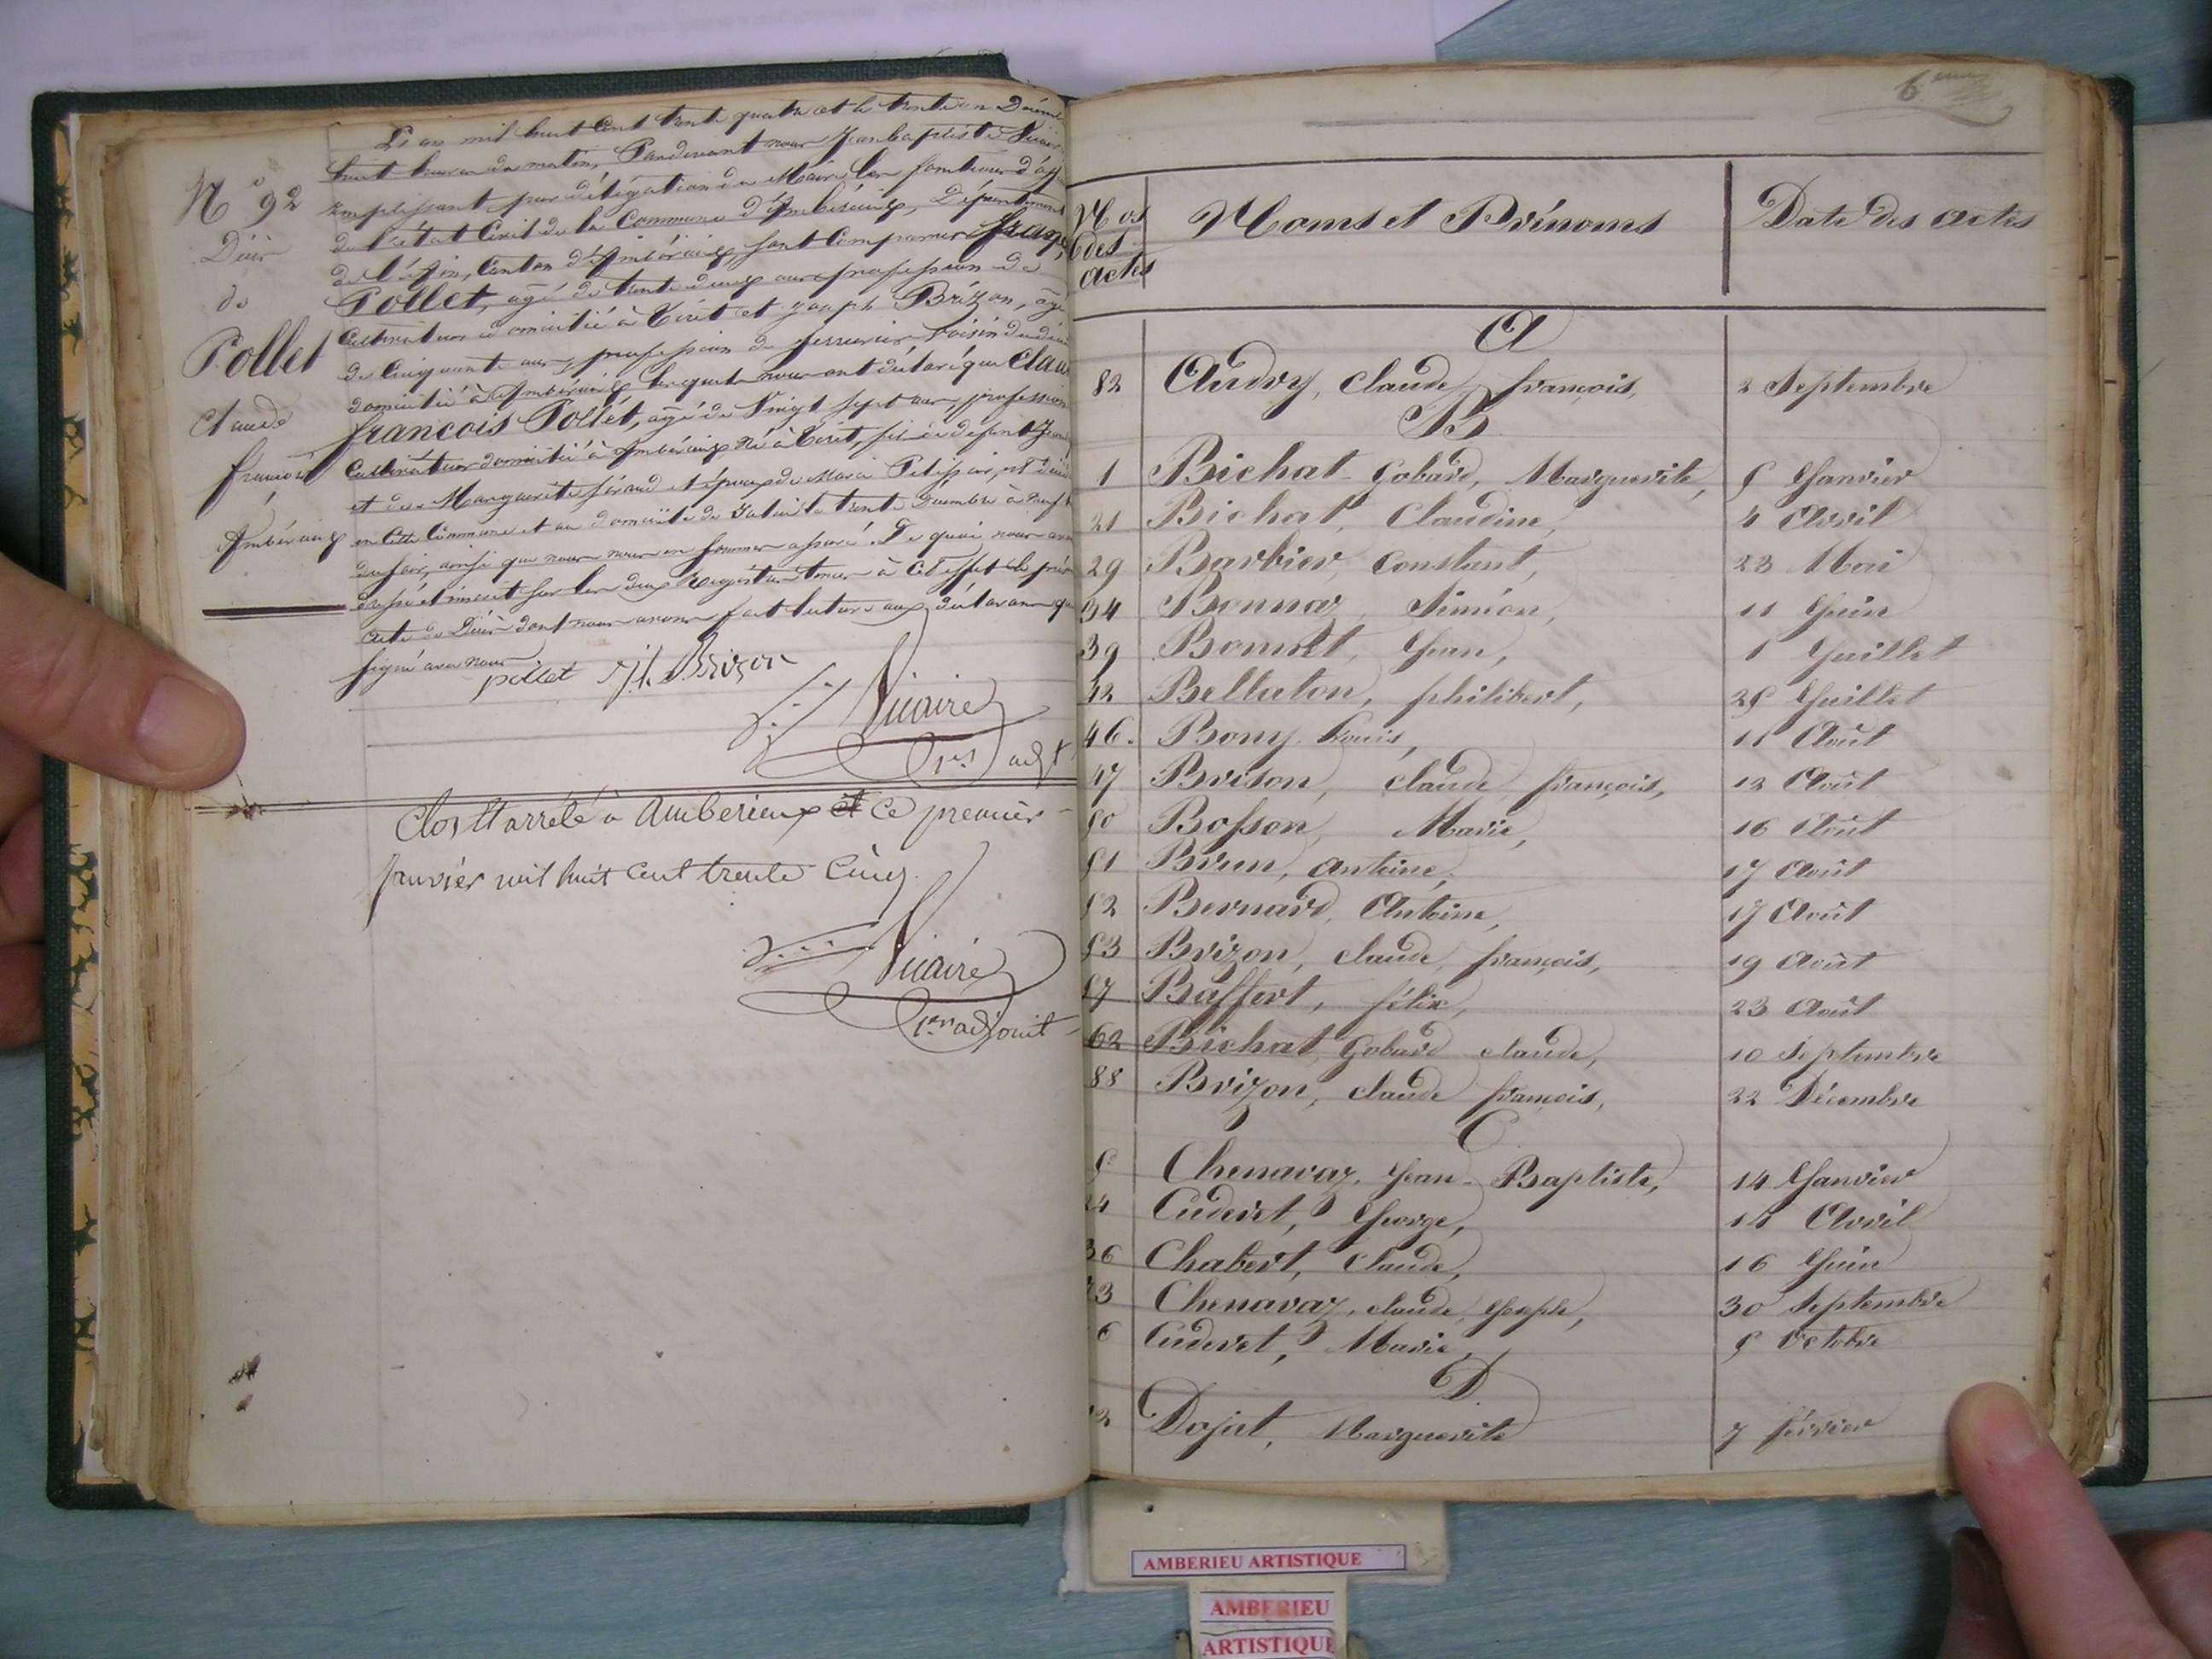 L'an mil huit cent trente quatre et le trente un Décemb
huit heures du matin, Pardevant nous Jean baptiste Vicaire
remplissant par délégation du Maire les fonctions d'off
de l'état Civil de la Commune d'Ambérieux, Département
de l'Ain, Canton d'Ambérieux, sont comparus franç
Pollet, agé de trente deux ans profession de
Cultivateur domicilié à Tiret et joseph Brizon, âgé
de Cinquante ans, profession de serrurier, voisin du di
domicilié à Ambérieux lesquels nous ont déclaré que Clau
françois Pollet, agé de Vingt sept ans, profession
Cultivateur domicilié à Ambérieux né à Tiret, fils de defunt Je
et de Marguerite féraud et époux de Marie est décé
en cette Commune et au domicile de trente Décembre à neuf h
du soir, ainsi que nous nous en sommes assuré. De quoi nous av
dressé et inscrit sur les deux Registres tenus à cet effet le prés
acte de Décès dont nous avons fait lecture aux déclarans q
signé avec nous
N° 92
Décès
de
Pollet
Claude
françois
Ambérieux
pollet Jh Brizon
Vicaire
1er adjt
Clos et arrêté à Amberieux et ce premier
janvier mil huit cent trente Cinq.
Vicaire
1er adjoint
6eme
Nos des actes Noms et Prénoms Date des actes
A
82 Audry, Claude françois, 2 Septembre
B
1 Bichat-Gobard, Marguerite, 5 Janvier
21 Bichat, Claudine, 4 Avril
29 Barbier, Constant, 23 Mai
34 Bonnaz, Siméon, 11 Juin
39 Bonnet, Jean, 1 Juillet
42 Bellaton, philibert, 25 Juillet
46. Bony Louis, 11 Août
47 Brison, Claude, françois, 12 Août
50 Bosson, Marie, 16 Août
51 Brun, Antoine, 17 Août
52 Bernard, Antoine, 17 Août
53 Brizon, Claude, françois, 19 Août
57 Baffert, félix, 23 Août
62 Bichat, Gobard Claude, 10 Septembre
88 Brizon, Claude françois, 22 Décembre
C
5 Chenavaz, Jean-Baptiste, 14 Janvier
24 Cuderet, George, 15 Avril
36 Chabert, Claude, 16 Juin
73 Chenavaz, Claude, Joseph, 30 Septembre
6 Cuderet, Marie, 5 Octobre
D
12 Dojat, Marguerite 7 février
AMBERIEU ARTISTIQUE
AMBERIEU
ARTISTIQUE